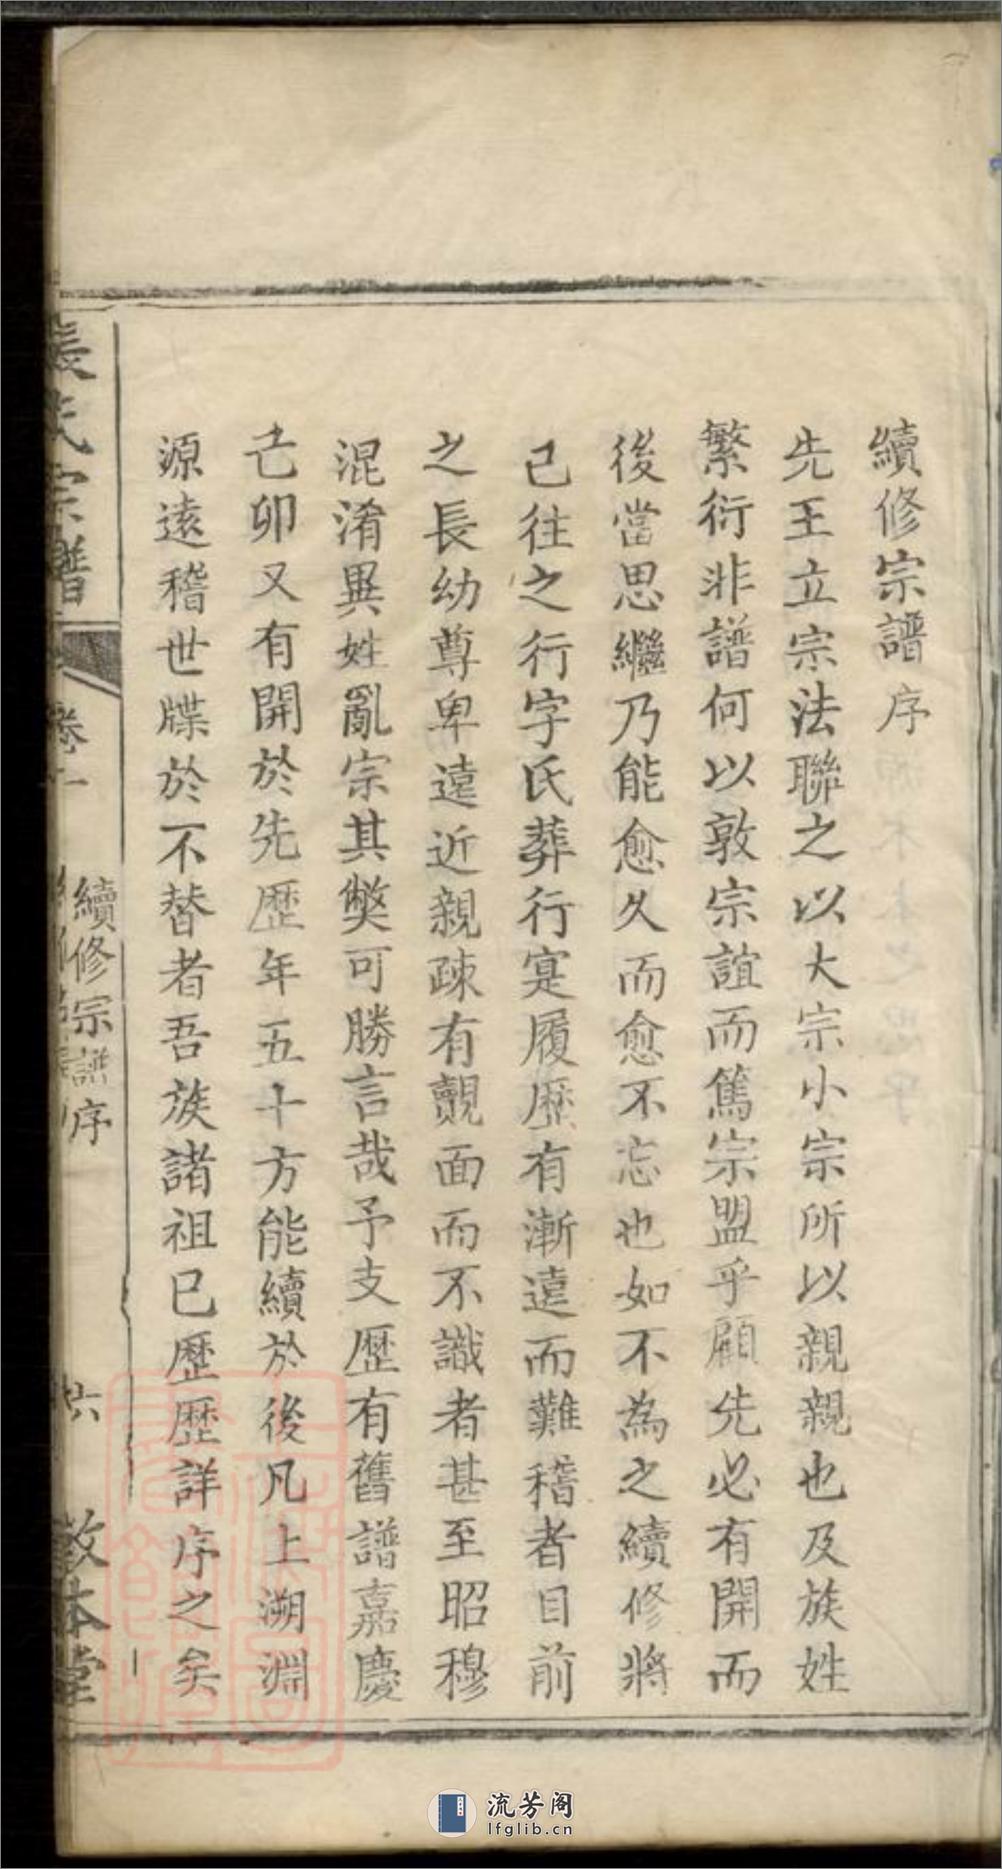 續修宗譜序
先王立宗法聯之以大宗小宗所以親親也及族姓
繁衍非譜何以敦宗誼而篤宗盟乎顧先必有開而
後當思繼乃能愈久而愈不忘也如不為之續修將
已往之行字氏葬行寔履歷有漸遠而難稽者目前
之長幼尊卑遠近親疎有覿面而不識者甚至昭穆
混淆異姓亂宗其獘可勝言哉予支歷有舊譜嘉慶
己卯又有開於先歷年五十方能續於後凡上溯淵
源遠稽世牒於不替者吾族諸祖已歷歷詳序之矣
張氏宗譜
卷一
續修宗譜序
六
敦本堂
流芳阁
lfglib.cn